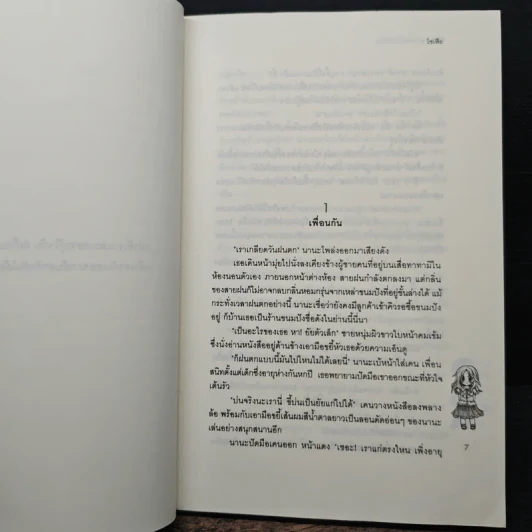 ใจเสือ
1
เพื่อนกัน
"เราเกลียดวันฝนตก" นานะโพล่งออกมาเสียงดัง
เธอเดินหน้ามุ่ยไปนั่งลงเคียงข้างผู้ชายคนที่อยู่บนเสื่อทาทามิใน
ห้องนอนตัวเอง ภายนอกหน้าต่างห้อง สายฝนกำลังตกลงมา แต่กลิ่น
ของสายฝนก็ไม่อาจกลบกลิ่นหอมกรุ่นจากเหล่าขนมปังที่อยู่ชั้นล่างได้ แม้
กระทั่งเวลาฝนตกอย่างนี้ นานะเชื่อว่ายังคงมีลูกค้าเข้าคิวรอซื้อขนมปัง
อยู่ ก็บ้านเธอเป็นร้านขนมปังชื่อดังในย่านนี้นี่นา
"เป็นอะไรของเธอ หา! ยัยตัวเล็ก" ชายหนุ่มผิวขาวใบหน้าคมเข้ม
ซึ่งนั่งอ่านหนังสืออยู่ด้านข้างเอามือขยี้หัวเธอด้วยความเอ็นดู
"ก็ฝนตกแบบนี้มันไปไหนไม่ได้เลยนี่" นานะเบ้หน้าใส่เคน เพื่อน
สนิทตั้งแต่เด็กซึ่งอายุห่างกันหกปี เธอพยายามปัดมือเขาออกขณะที่หัวใจ
เต้นรัว
"บ่นจริงนะเรานี่ ขี้บ่นเป็นยัยแก่ไปได้" เคนวางหนังสือลงพลาง
ล้อ พร้อมกับเอามือขยี้เส้นผมสีน้ำตาลยาวเป็นลอนดัดอ่อนๆ ของนานะ
เล่นอย่างสนุกสนานอีก
นานะปัดมือเคนออก หน้าแดง "เชอะ! เราแก่ตรงไหน เพิ่งอายุ
7